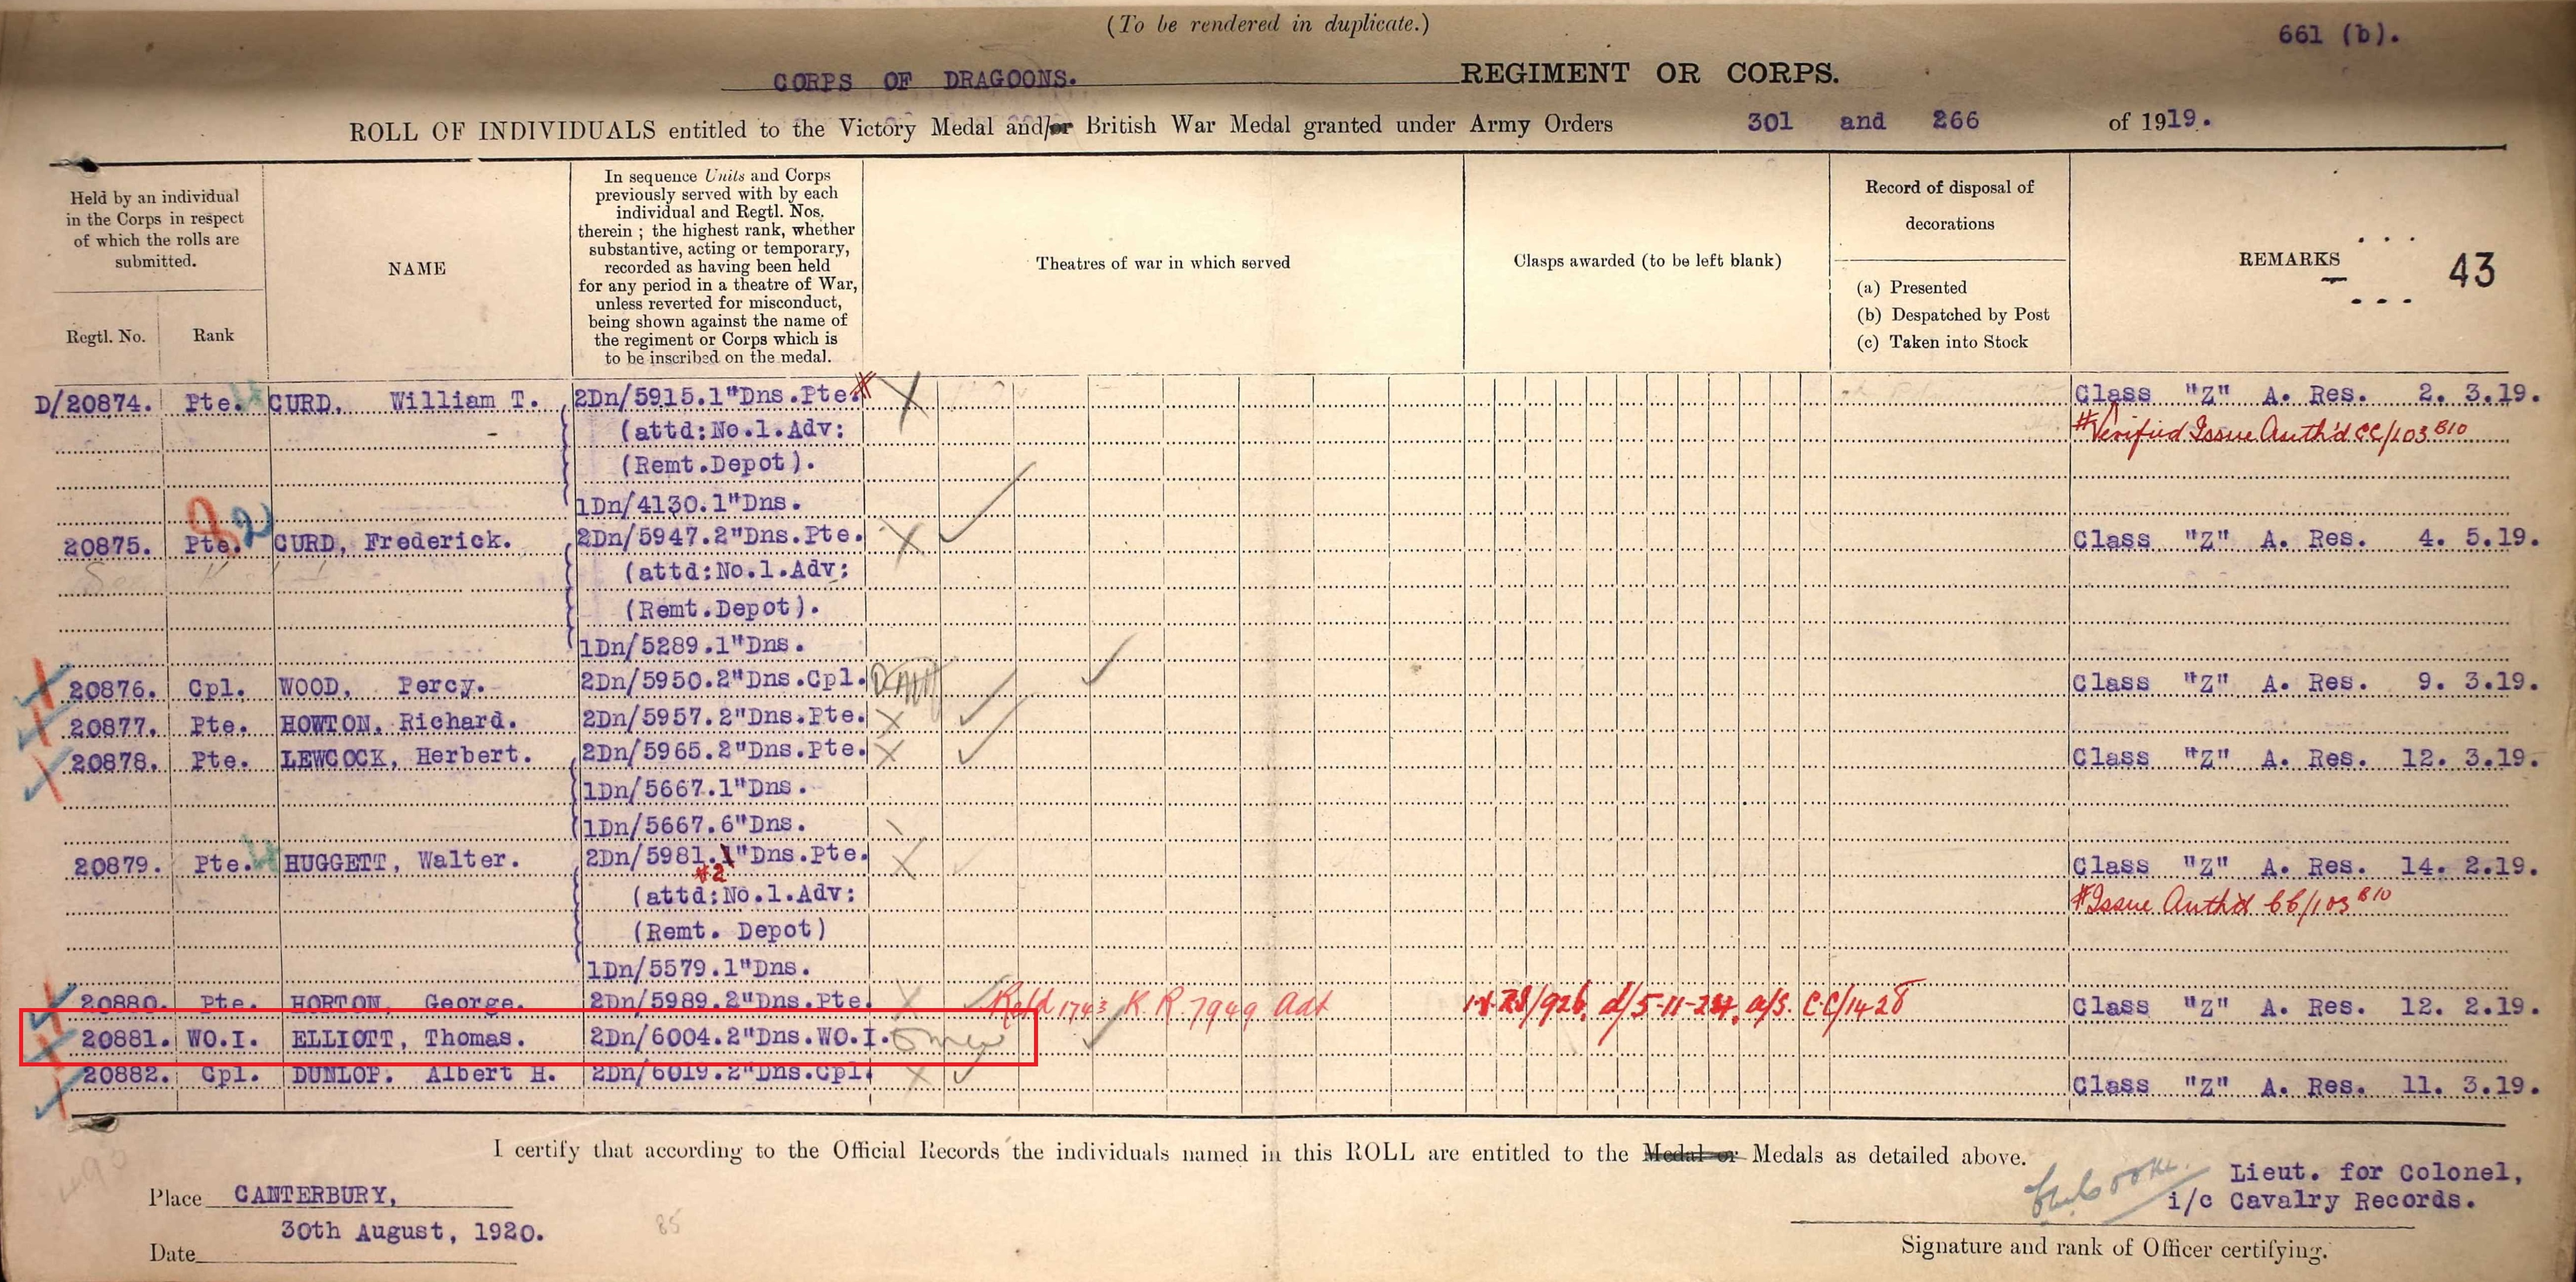 (To be rendered in duplicate.)
661 (b).
CORPS OF DRAGOONS. REGIMENT OR CORPS.
ROLL OF INDIVIDUALS entitled to the Victory Medal and/or British War Medal granted under Army Orders 301 and 266 of 1919.
Held by an individual
in the Corps in respect
of which the rolls are
submitted.
Regtl. No.
Rank
NAME
In sequence Units and Corps
previously served with by each
individual and Regtl. Nos.
therein ; the highest rank, whether
substantive, acting or temporary,
recorded as having been held
for any period in a theatre of War,
unless reverted for misconduct,
being shown against the name of
the regiment or Corps which is
to be inscribed on the medal.
Theatres of war in which served
Clasps awarded (to be left blank)
Record of disposal of
decorations
(a) Presented
(b) Despatched by Post
(c) Taken into Stock
REMARKS
43
D/20874. Pte. CURD, William T. 2Dn/5915.1"Dns.Pte. Class "Z" A. Res. 2. 3.19.
(attd:No.1.Adv: #Verified Issue Auth'd CC/103 B10
(Remt.Depot).
1Dn/4130.1"Dns.
20875. Pte. CURD, Frederick. 2Dn/5947.2"Dns.Pte. Class "Z" A. Res. 4. 5.19.
(attd:No.1.Adv:
(Remt.Depot).
1Dn/5289.1"Dns.
20876. Cpl. WOOD, Percy. 2Dn/5950.2"Dns.Cpl. Class "Z" A. Res. 9. 3.19.
20877. Pte. HOWTON, Richard. 2Dn/5957.2"Dns.Pte.
20878. Pte. LEWCOCK, Herbert. 2Dn/5965.2"Dns.Pte. Class "Z" A. Res. 12. 3.19.
1Dn/5667.1"Dns.
1Dn/5667.6"Dns.
20879. Pte. HUGGETT, Walter. 2Dn/5981.1"Dns.Pte. Class "Z" A. Res. 14. 2.19.
#2
(attd:No.1.Adv: #Issue Auth'd 66/103 B10
(Remt. Depot)
1Dn/5579.1"Dns.
20880. Pte. HORTON, George. 2Dn/5989.2"Dns.Pte. 1743 K R. Class "Z" A. Res. 12. 2.19.
20881. WO.I. ELLIOTT, Thomas. 2Dn/6004.2"Dns.WO.I.
20882. Cpl. DUNLOP. Albert H. 2Dn/6019.2"Dns.Cpl. Class "Z" A. Res. 11. 3.19.
I certify that according to the Official Records the individuals named in this ROLL are entitled to the Medal or Medals as detailed above.
Place CANTERBURY,
30th August, 1920.
Date
85
Lieut. for Colonel,
i/c Cavalry Records.
Signature and rank of Officer certifying.